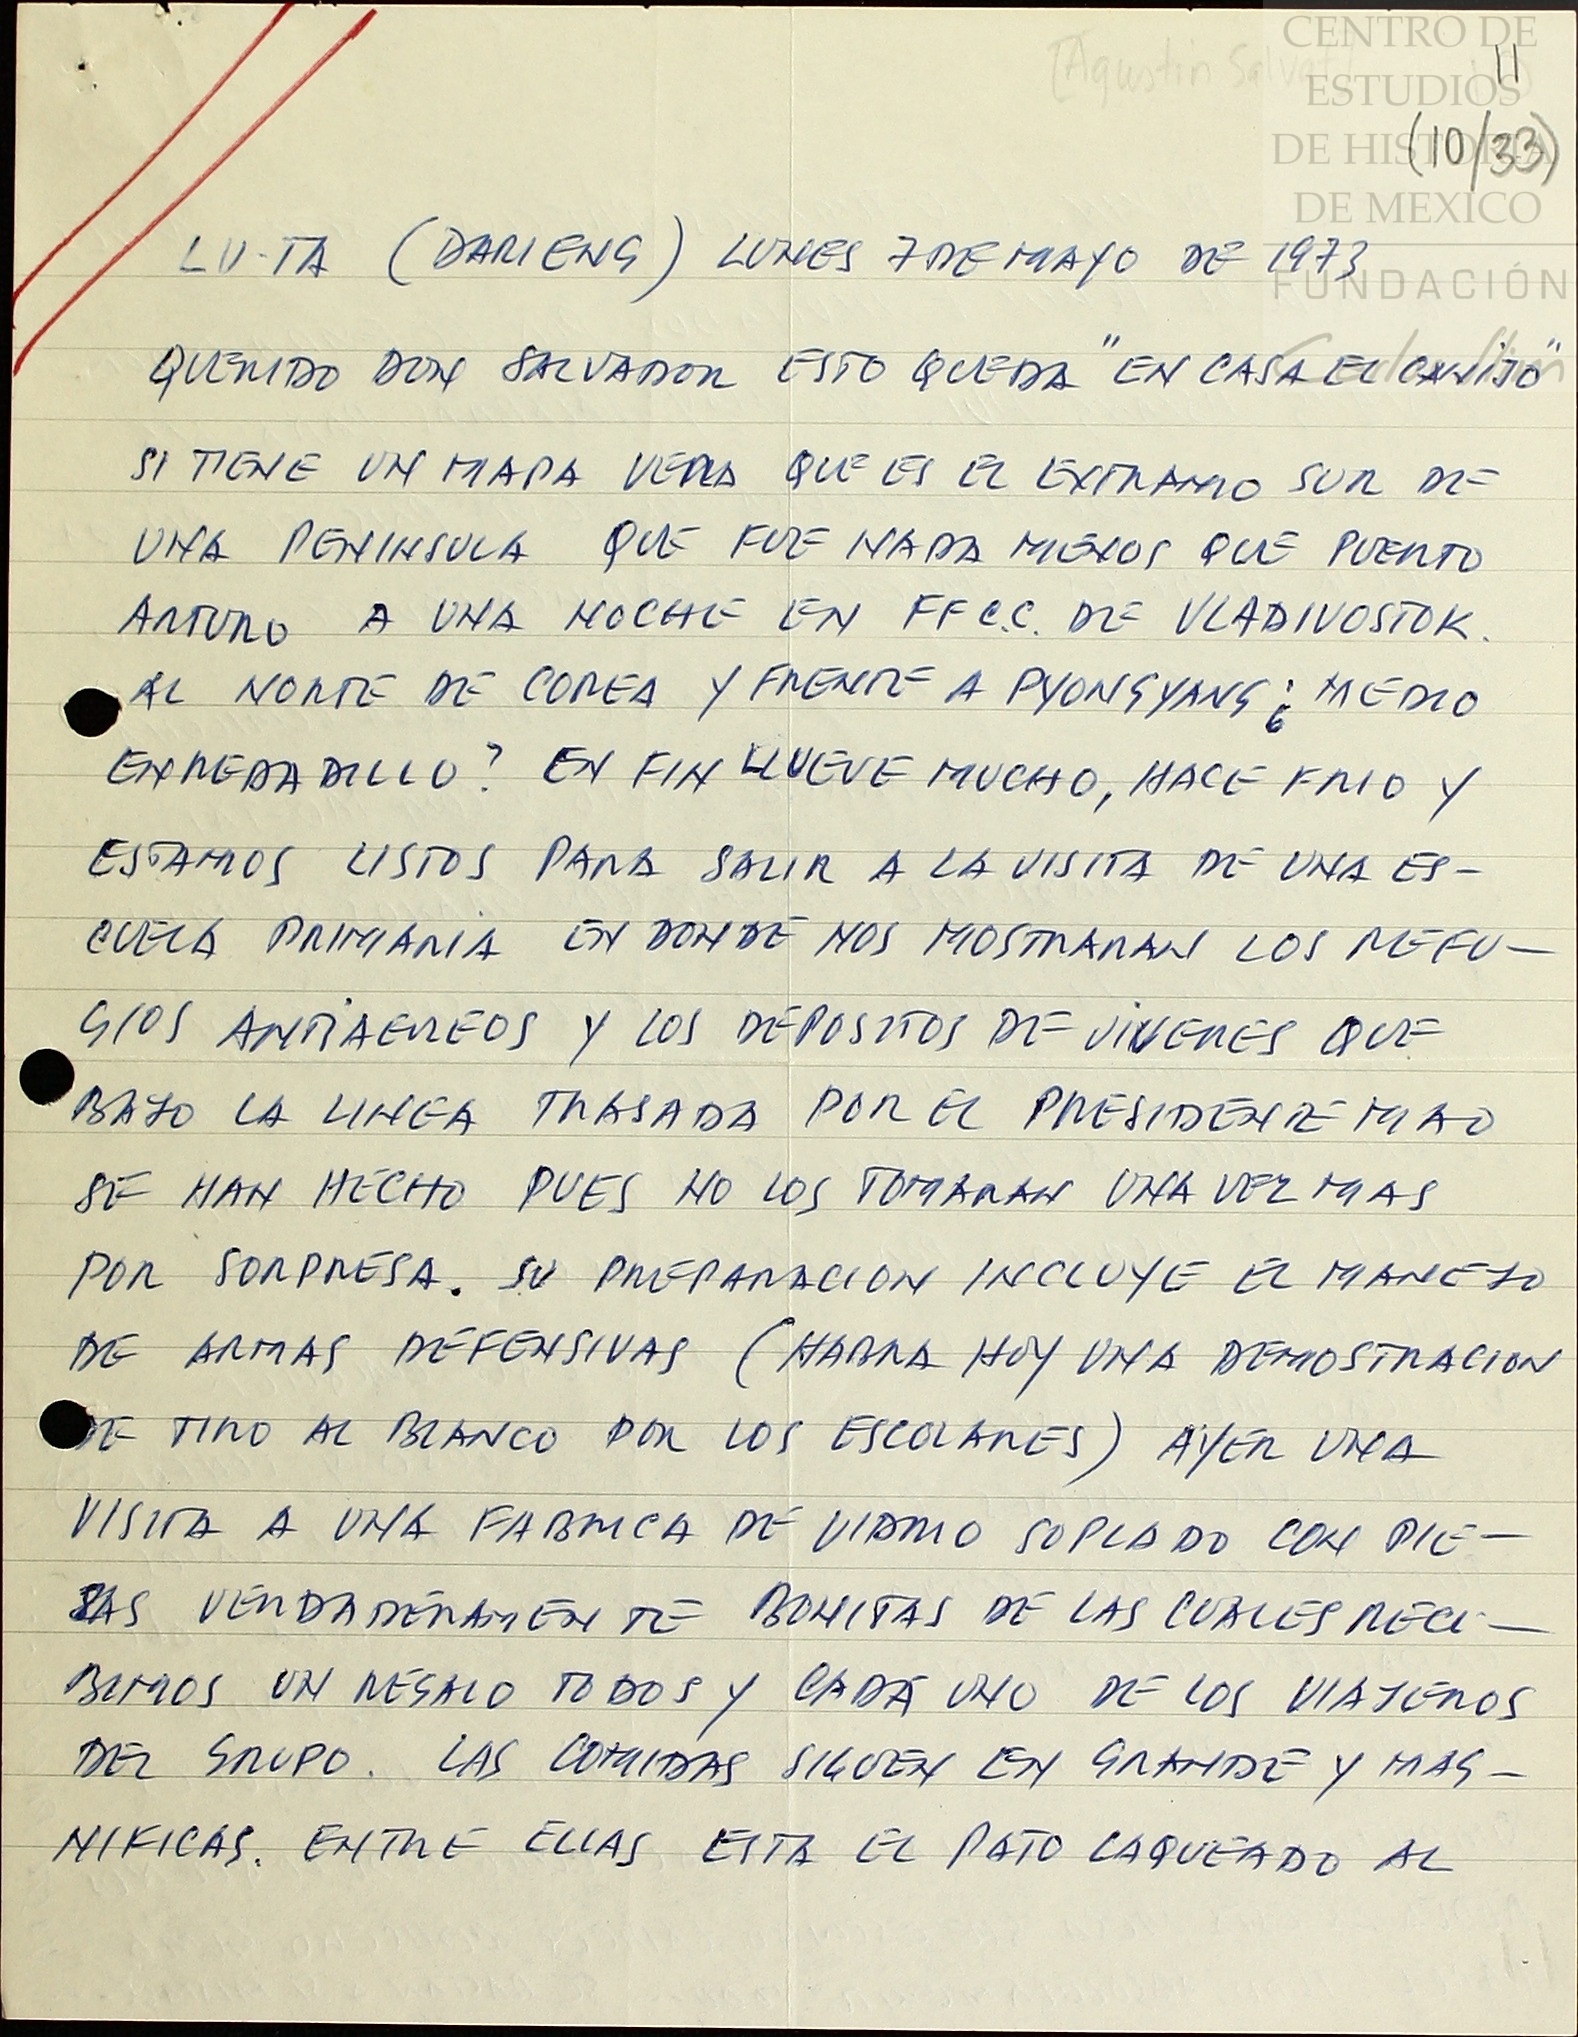 [Agustín Salvat]
11
(10/33)
CENTRO DE
ESTUDIOS
DE HISTORIA
DE MEXICO
FUNDACIÓN
LU-TA (DARIENG) LUNES 7 DE MAYO DE 1973
QUERIDO DON SALVADOR ESTO QUEDA "EN CASA EL CANIJO"
SI TIENE UN MAPA VERA QUE ES EL EXTRAMO SUR DE
UNA PENINSULA QUE FUE NADA MENOS QUE PUERTO
ARTURO A UNA NOCHE EN FF C.C. DE VLADIVOSTOK.
AL NORTE DE COREA Y FRENTE A PYONGYANG ¿MEDIO
ENREDADILLO? EN FIN LLUEVE MUCHO, HACE FRIO Y
ESTAMOS LISTOS PARA SALIR A LA VISITA DE UNA ES-
CUELA PRIMARIA EN DONDE NOS MOSTRARAN LOS REFU-
GIOS ANTIAEREOS Y LOS DEPOSITOS DE VIVERES QUE
BAJO LA LINEA TRASADA POR EL PRESIDENTE MAO
SE HAN HECHO PUES NO LOS TOMARAN UNA VEZ MAS
POR SORPRESA. SU PREPARACION INCLUYE EL MANEJO
DE ARMAS DEFENSIVAS (HABRA HOY UNA DEMOSTRACION
DE TIRO AL BLANCO POR LOS ESCOLARES) AYER UNA
VISITA A UNA FABRICA DE VIDRIO SOPLADO CON PIE-
ZAS VERDADERAMENTE BONITAS DE LAS CUALES RECI-
BIMOS UN REGALO TODOS Y CADA UNO DE LOS VIAJEROS
DEL GRUPO. LAS COMIDAS SIGUEN EN GRANDE Y MAG-
NIFICAS. ENTRE ELLAS ESTA EL PATO LAQUEADO AL